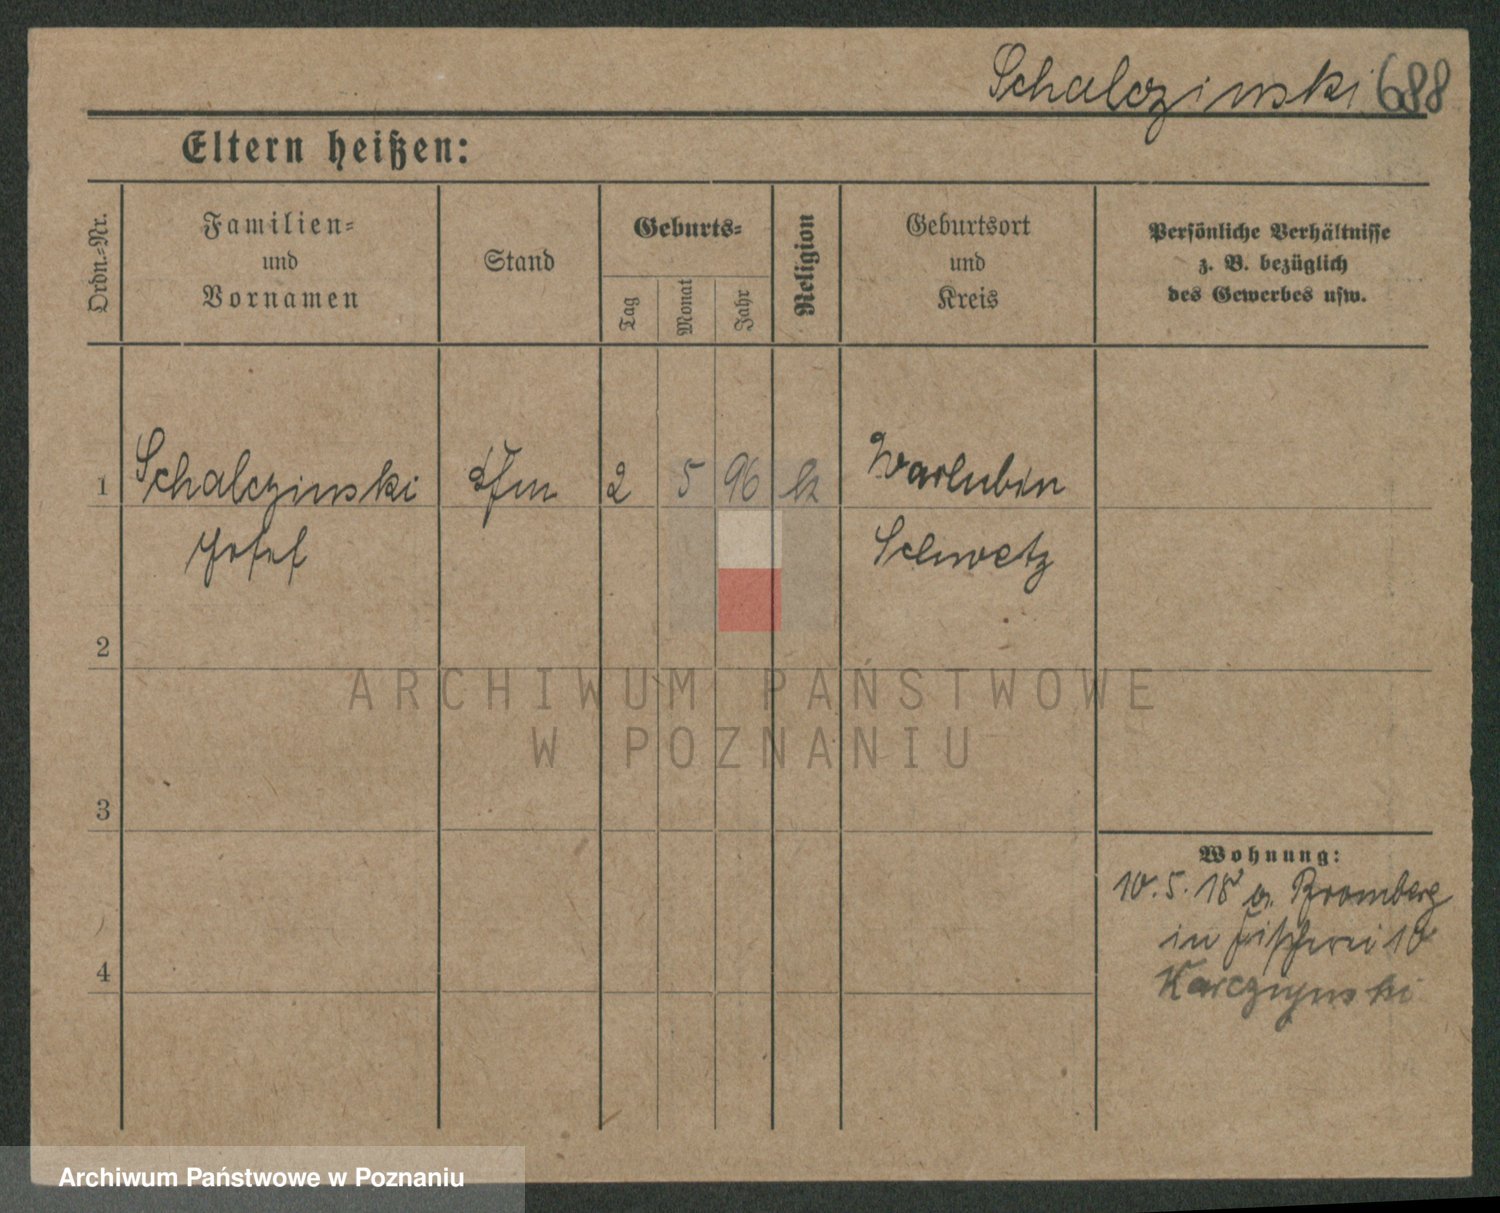 Schalczinski 688
Eltern heißen:
Ordn.-Nr.
Familien-
und
Vornamen
Stand
Geburts-
Tag
Monat
Jahr
Religion
Geburtsort
und
Kreis
Persönliche Verhältnisse
z. B. bezüglich
des Gewerbes usw.
1 Schalczinski 2 5 96 Warlubin
Josef Schwetz
2
3
4
Wohnung:
10.5.18 Bromberg
in Fischerei 10
Karczynski
ARCHIWUM PAŃSTWOWE
W POZNANIU
Archiwum Państwowe w Poznaniu